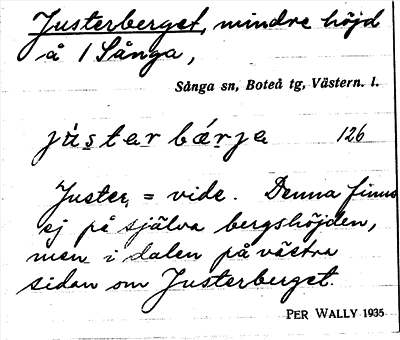 Justerberget, mindre höjd
å 1 Sånga,
Sånga sn, Boteå tg, Västern. l.
jùstarbǽrja 126
Juster = vide. Denna finns
ej på själva bergshöjden,
men i dalen på västra
sidan om Justerberget.
PER WALLY 1935